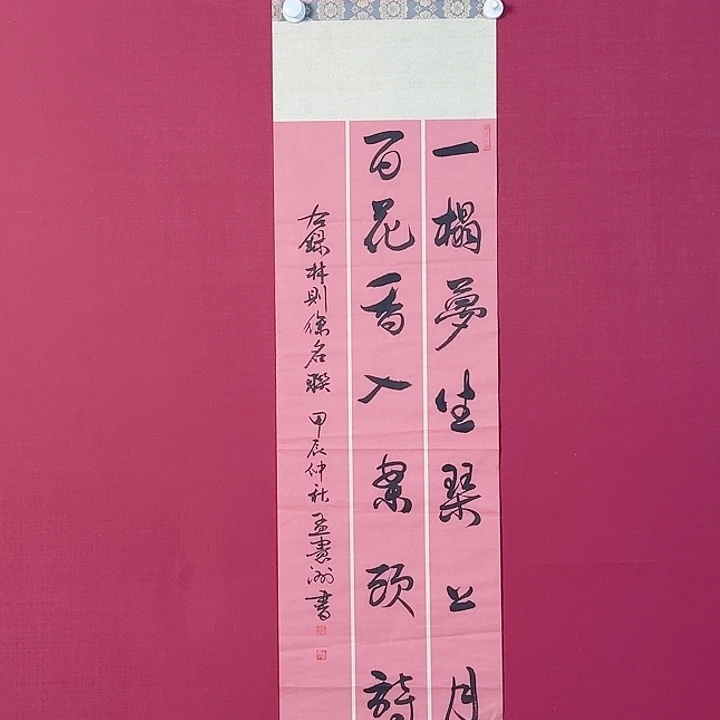 一榻夢生琴上月
百花香入案頭詩
右錄林則徐名聯 甲辰仲秋 孟憲洲書